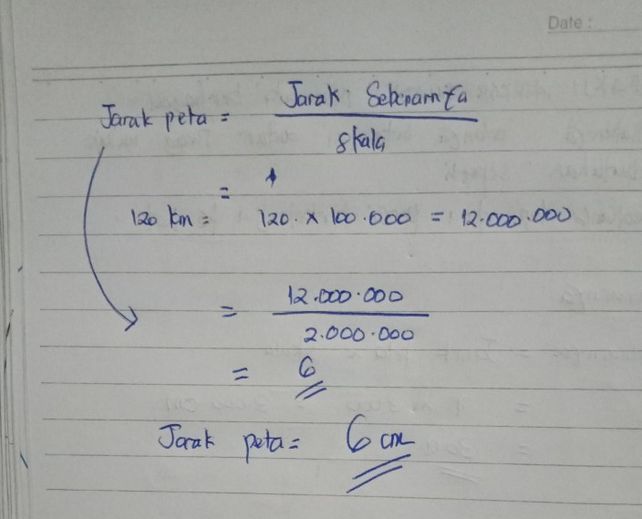 Date :
Jarak peta = Jarak Sebenarnya
skala
=
120 km = 120 × 100.000 = 12.000.000
= 12.000.000
2.000.000
= 6
Jarak peta = 6 cm